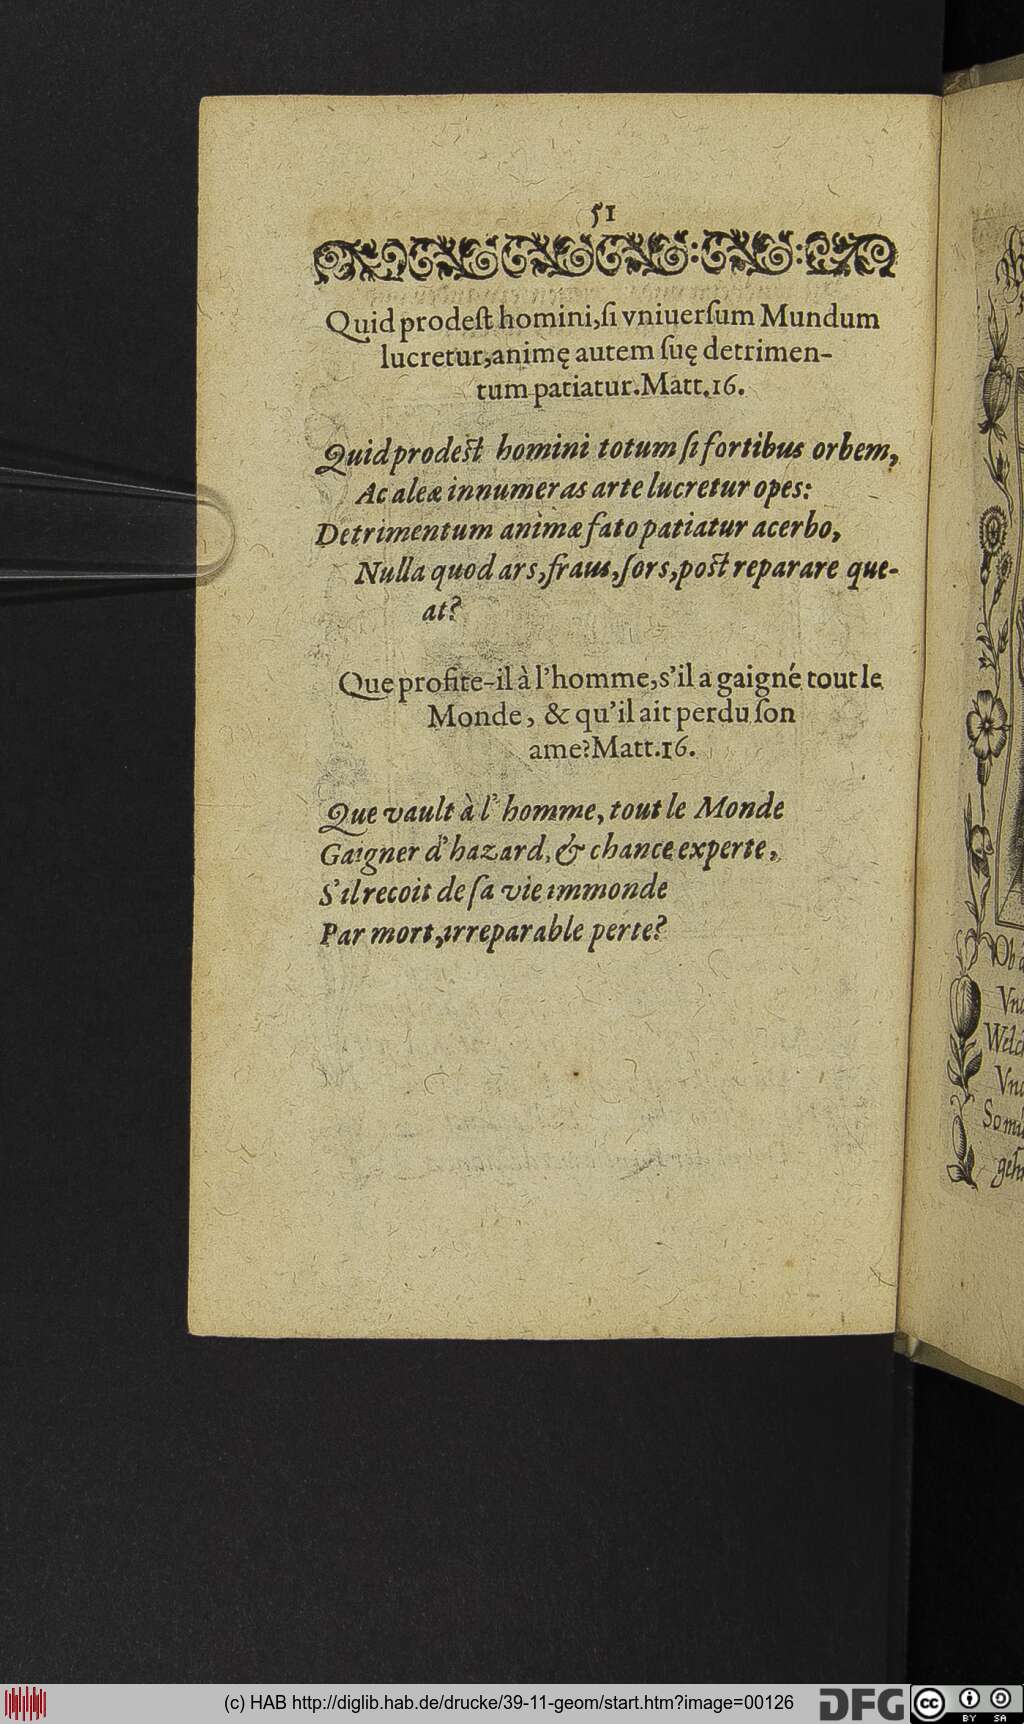 51
Quid prodeſt homini, ſi vniuerſum Mundum
lucretur, animę autem ſuę detrimen-
tum patiatur. Matt. 16.
Quid prodeſt homini totum ſi fortibus orbem,
Ac aleæ innumeras arte lucretur opes:
Detrimentum animæ fato patiatur acerbo,
Nulla quod ars, fraus, ſors, poſt reparare que-
at?
Que profite-il à l'homme, s'il a gaigné tout le
Monde, & qu'il ait perdu ſon
ame? Matt. 16.
Que vault à l'homme, tout le Monde
Gaigner d'hazard, & chance experte,
S'il recoit de ſa vie immonde
Par mort, irreparable perte?
Ob
Welc
(c) HAB http://diglib.hab.de/drucke/39-11-geom/start.htm?image=00126
DFG
cc BY SA